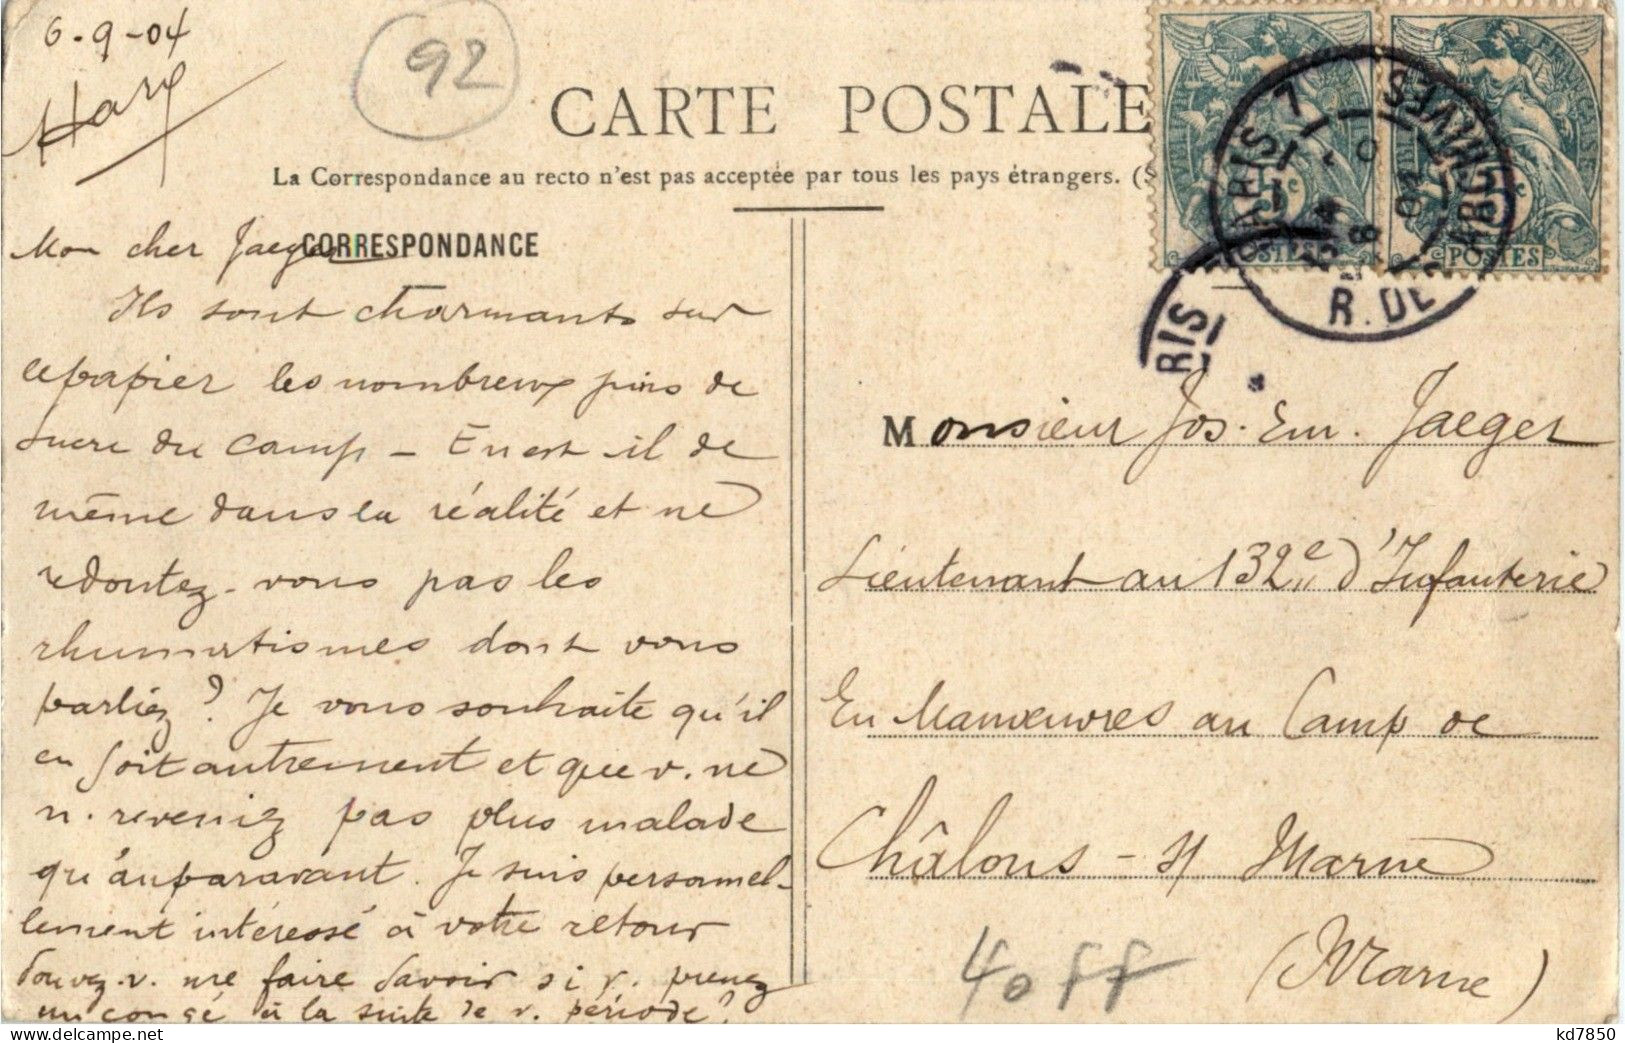 6-9-04
Hary
92
CARTE POSTALE
La Correspondance au recto n'est pas acceptée par tous les pays étrangers. (S
CORRESPONDANCE
Mon cher Jaeger
Ils sont charmants sur
le papier les nombreux pins de
sucre du camp – En est-il de
même dans la réalité et ne
redoutez-vous pas les
rhumatismes dont vous
parliez ? Je vous souhaite qu'il
en soit autrement et que v. ne
n. reveniez pas plus malade
qu'auparavant. Je suis personnel-
lement intéressé à votre retour
Pouvez-v. me faire savoir si v. prenez
un congé à la suite de v. période ?
POSTES
POSTES
PARIS 7
R. DES ARCHIVES
RIS
Monsieur Jos. Em. Jaeger
Lieutenant au 132e d'Infanterie
En Manœuvres au Camp de
Châlons - s/ Marne
(Marne)
40 ff
kd7850